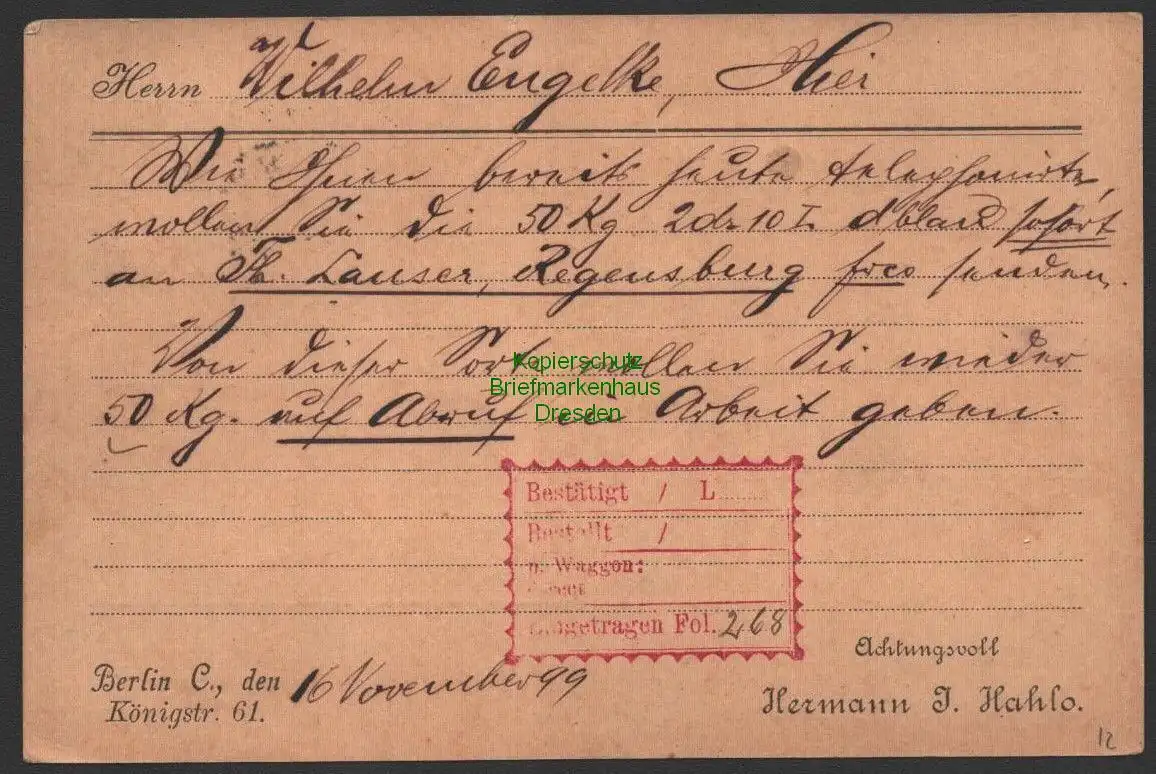 Herrn Wilhelm Engelke, Hier
Wie Ihnen bereits heute telephonirte,
wollen Sie die 50 Kg 2dr 10 I. dblau sofort
an Th. Lauser, Regensburg frco senden.
Von dieser Sorte wollen Sie wieder
50 Kg. auf Abruf in Arbeit geben.
Kopierschutz
Briefmarkenhaus
Dresden
Bestätigt / L
Bestellt /
Waggon:
Eingetragen Fol. 268
Achtungsvoll
Berlin C., den 16 November 99
Königstr. 61.
Hermann J. Hahlo.
12